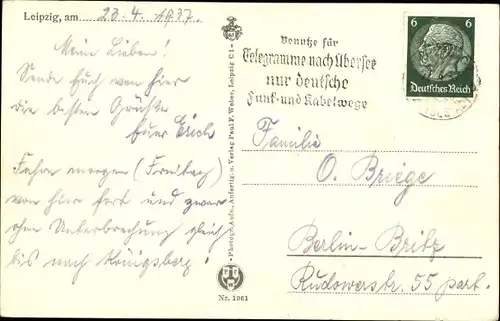 Leipzig, am 23. 4. 1937.
Meine Lieben!
Sende Euch von hier
die besten Grüße
Euer Erich
Fahre morgen (Freitag)
von hier fort und zwar
ohne Unterbrechung gleich
bis nach Königsberg!
Photogr. Aufn., Anfertig. u. Verlag Paul F. Weber, Leipzig C 1
Nr. 1061
Benutze für
Telegramme nach Übersee
nur deutsche
Funk- und Kabelwege
6 6
Deutsches Reich
Familie
O. Briege
Berlin-Britz
Rudowerstr. 55 part.